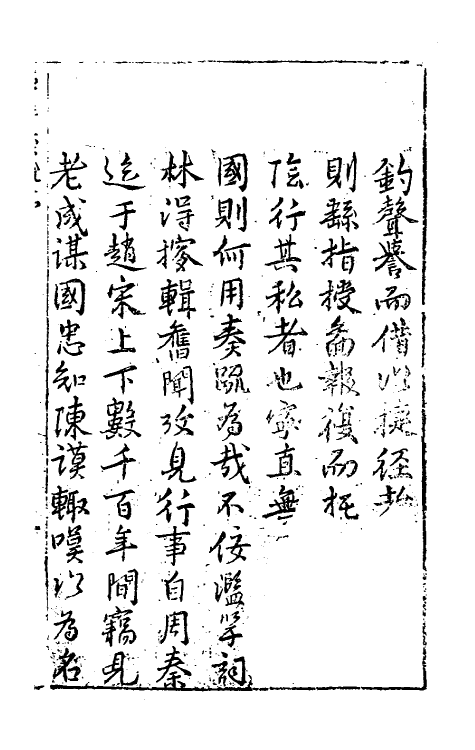 釣聲譽而借以捷徑於
則繇指授為報復而托
陰行其私者也寧直無
國則何用奏疏為哉不佞濫竽詞
林得採輯舊聞攷見行事自周秦
迄于趙宋上下數千百年間竊見
老成謀國忠如陳謨輒嘆以為名